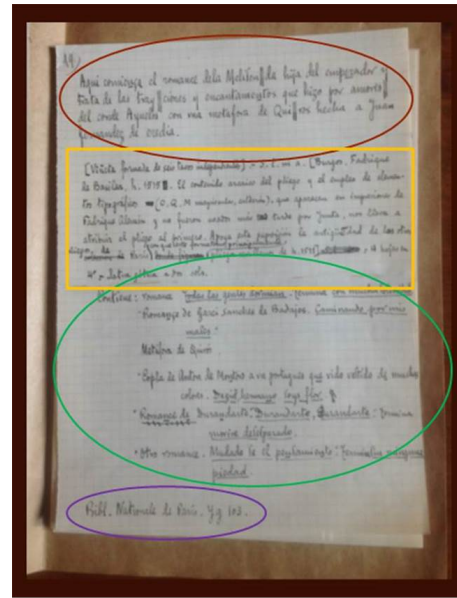 19)
Aqui comienza el romance dela Melisenda hija del emperador y
trata de las trayciones y encantamentos que hizo por amores
del conde Ayuelos con una metafora de Quiros hecha a Juan
fernandez de eredia.
[Viñeta formada de tres tacos independientes] - S. l. ni a. [Burgos, Fadrique
de Basilea, h. 1515. El contenido arcaico del pliego y el empleo de elemen-
tos tipográficos (O, Q, M mayúsculas, calderón), que aparecen en impresiones de
Fadrique Alemán y no fueron usados más tarde por Junta, nos lleva a
atribuir el pliego al primero. Apoya esta suposición la antigüedad de los otros
4º - letra gótica a dos cols.
Contiene: romance Todas las gentes dormian. Termina
"Romance de Garci Sanchez de Badajoz. Caminando por mis
males."
Metafora de Quiros
"Copla de Anton de Montoro a un portugues que vido vestido de muchos
colores. Dezid hermano soys flor
"Romance de Durandarte. Durandarte, Durandarte. Termina
morire desesperado.
"Otro romance. Mudado se el pensamiento.
piedad.
Bibl. Nationale de Paris. Yg 103.